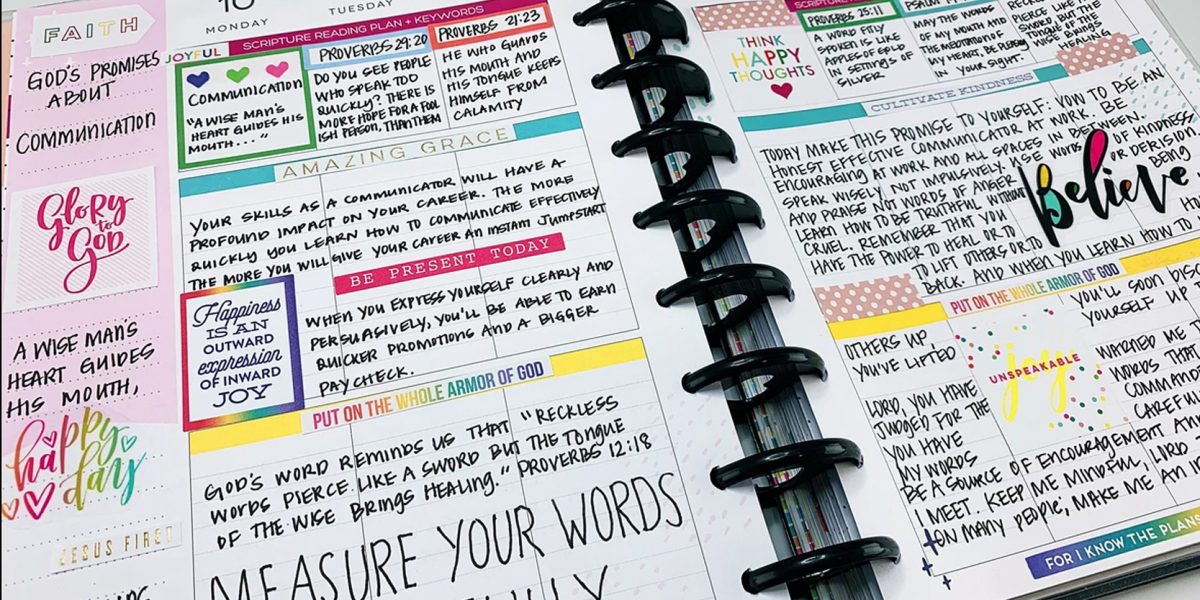 10
MONDAY
TUESDAY
FAITH
GOD'S PROMISES
ABOUT
COMMUNICATION
Glory
to
God
A WISE MAN'S
HEART GUIDES
HIS MOUTH,
happy
day
JESUS FIRST
JOYFUL
SCRIPTURE READING PLAN + KEYWORDS
COMMUNICATION
"A WISE MAN'S
HEART GUIDES HIS
MOUTH..."
PROVERBS 29:20
DO YOU SEE PEOPLE
WHO SPEAK TOO
QUICKLY? THERE IS
MORE HOPE FOR A FOOL
ISH PERSON, THAN THEM
PROVERBS 21:23
HE WHO GUARDS
HIS MOUTH AND
HIS TONGUE KEEPS
HIMSELF FROM
CALAMITY
AMAZING GRACE
YOUR SKILLS AS A COMMUNICATOR WILL HAVE A
PROFOUND IMPACT ON YOUR CAREER. THE MORE
QUICKLY YOU LEARN HOW TO COMMUNICATE EFFECTIVELY
THE MORE YOU WILL GIVE YOUR CAREER AN INSTANT JUMPSTART
BE PRESENT TODAY
Happiness
IS AN
OUTWARD
expression
OF INWARD
JOY
WHEN YOU EXPRESS YOURSELF CLEARLY AND
PERSUASIVELY, YOU'LL BE ABLE TO EARN
QUICKER PROMOTIONS AND A BIGGER
PAY CHECK.
PUT ON THE WHOLE ARMOR OF GOD
GOD'S WORD REMINDS US THAT "RECKLESS
WORDS PIERCE LIKE A SWORD BUT THE TONGUE
OF THE WISE BRINGS HEALING." PROVERBS 12:18
MEASURE YOUR WORDS
THINK
HAPPY
THOUGHTS
PROVERBS 25:11
A WORD FITLY
SPOKEN IS LIKE
APPLES OF GOLD
IN SETTINGS OF
SILVER
MAY THE WORDS
OF MY MOUTH AND
THE MEDITATION OF
MY HEART, BE PLEASING
IN YOUR SIGHT.
PIERCE LIKE A
SWORD, BUT THE
TONGUE OF THE
WISE BRINGS
HEALING
CULTIVATE KINDNESS
TODAY MAKE THIS PROMISE TO YOURSELF: VOW TO BE AN
HONEST EFFECTIVE COMMUNICATOR AT WORK. BE
ENCOURAGING AT WORK AND ALL SPACES IN BETWEEN.
SPEAK WISELY, NOT IMPULSIVELY. USE WORDS OF KINDNESS
AND PRAISE NOT WORDS OF ANGER OR DERISION
LEARN HOW TO BE TRUTHFUL WITHOUT BEING
CRUEL. REMEMBER THAT YOU
HAVE THE POWER TO HEAL OR TO
TO LIFT OTHERS OR TO
BACK. AND WHEN YOU LEARN HOW TO
Believe
PUT ON THE WHOLE ARMOR OF GOD
OTHERS UP,
YOU'VE LIFTED
YOU'LL SOON
YOURSELF UP
UNSPEAKABLE
joy
LORD, YOU HAVE
JUDGED FOR THE
YOU HAVE
MY WORDS
BE A SOURCE OF ENCOURAGEMENT
I MEET. KEEP ME MINDFUL, LORD
ON MANY PEOPLE, MAKE ME AN
WARNED ME
WORDS THAT
COMMAND
CAREFUL
FOR I KNOW THE PLANS